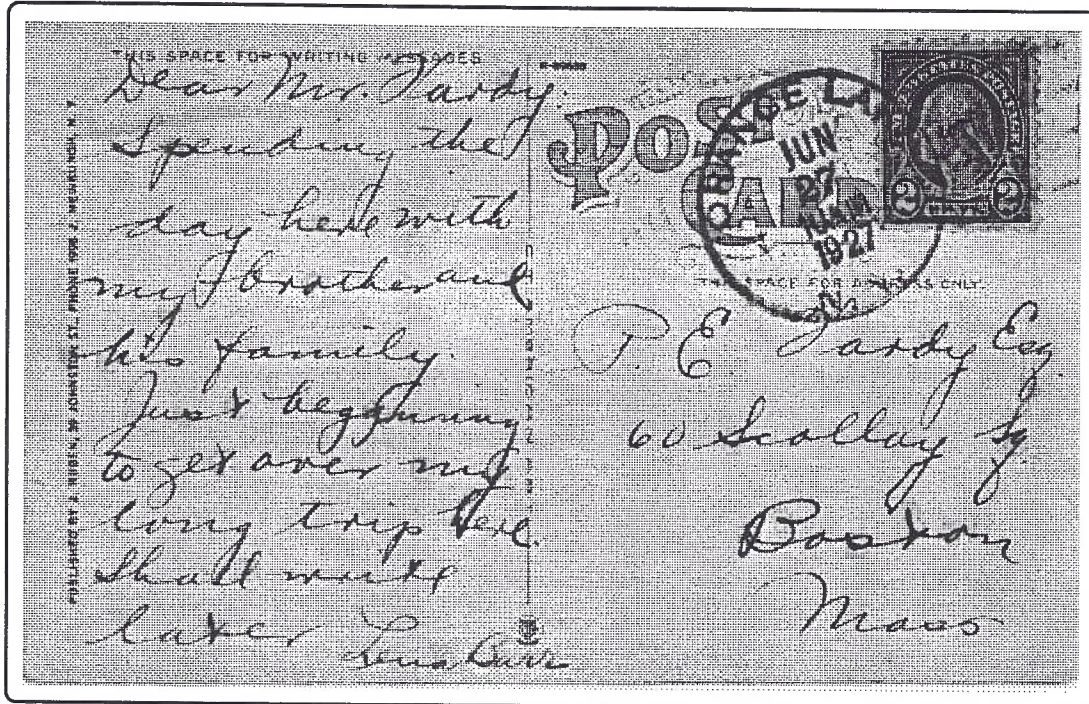 THIS SPACE FOR WRITING MESSAGES
Dear Mr. Tardy.
Spending the
day here with
my brother and
his family.
Just beginning
to get over my
long trip here.
Shall write
later
Lena Burr
PUBLISHED BY J. RUBEN, JOHNSTON ST., PHONE 1998 J, NEWBURGH, N. Y.
POST
CARD
ORANGE LA
JUN
27
1927
N.
2 CENTS 2
THIS SPACE FOR ADDRESS ONLY.
P. E. Tardy Esq
60 Scollay Sq.
Boston
Mass